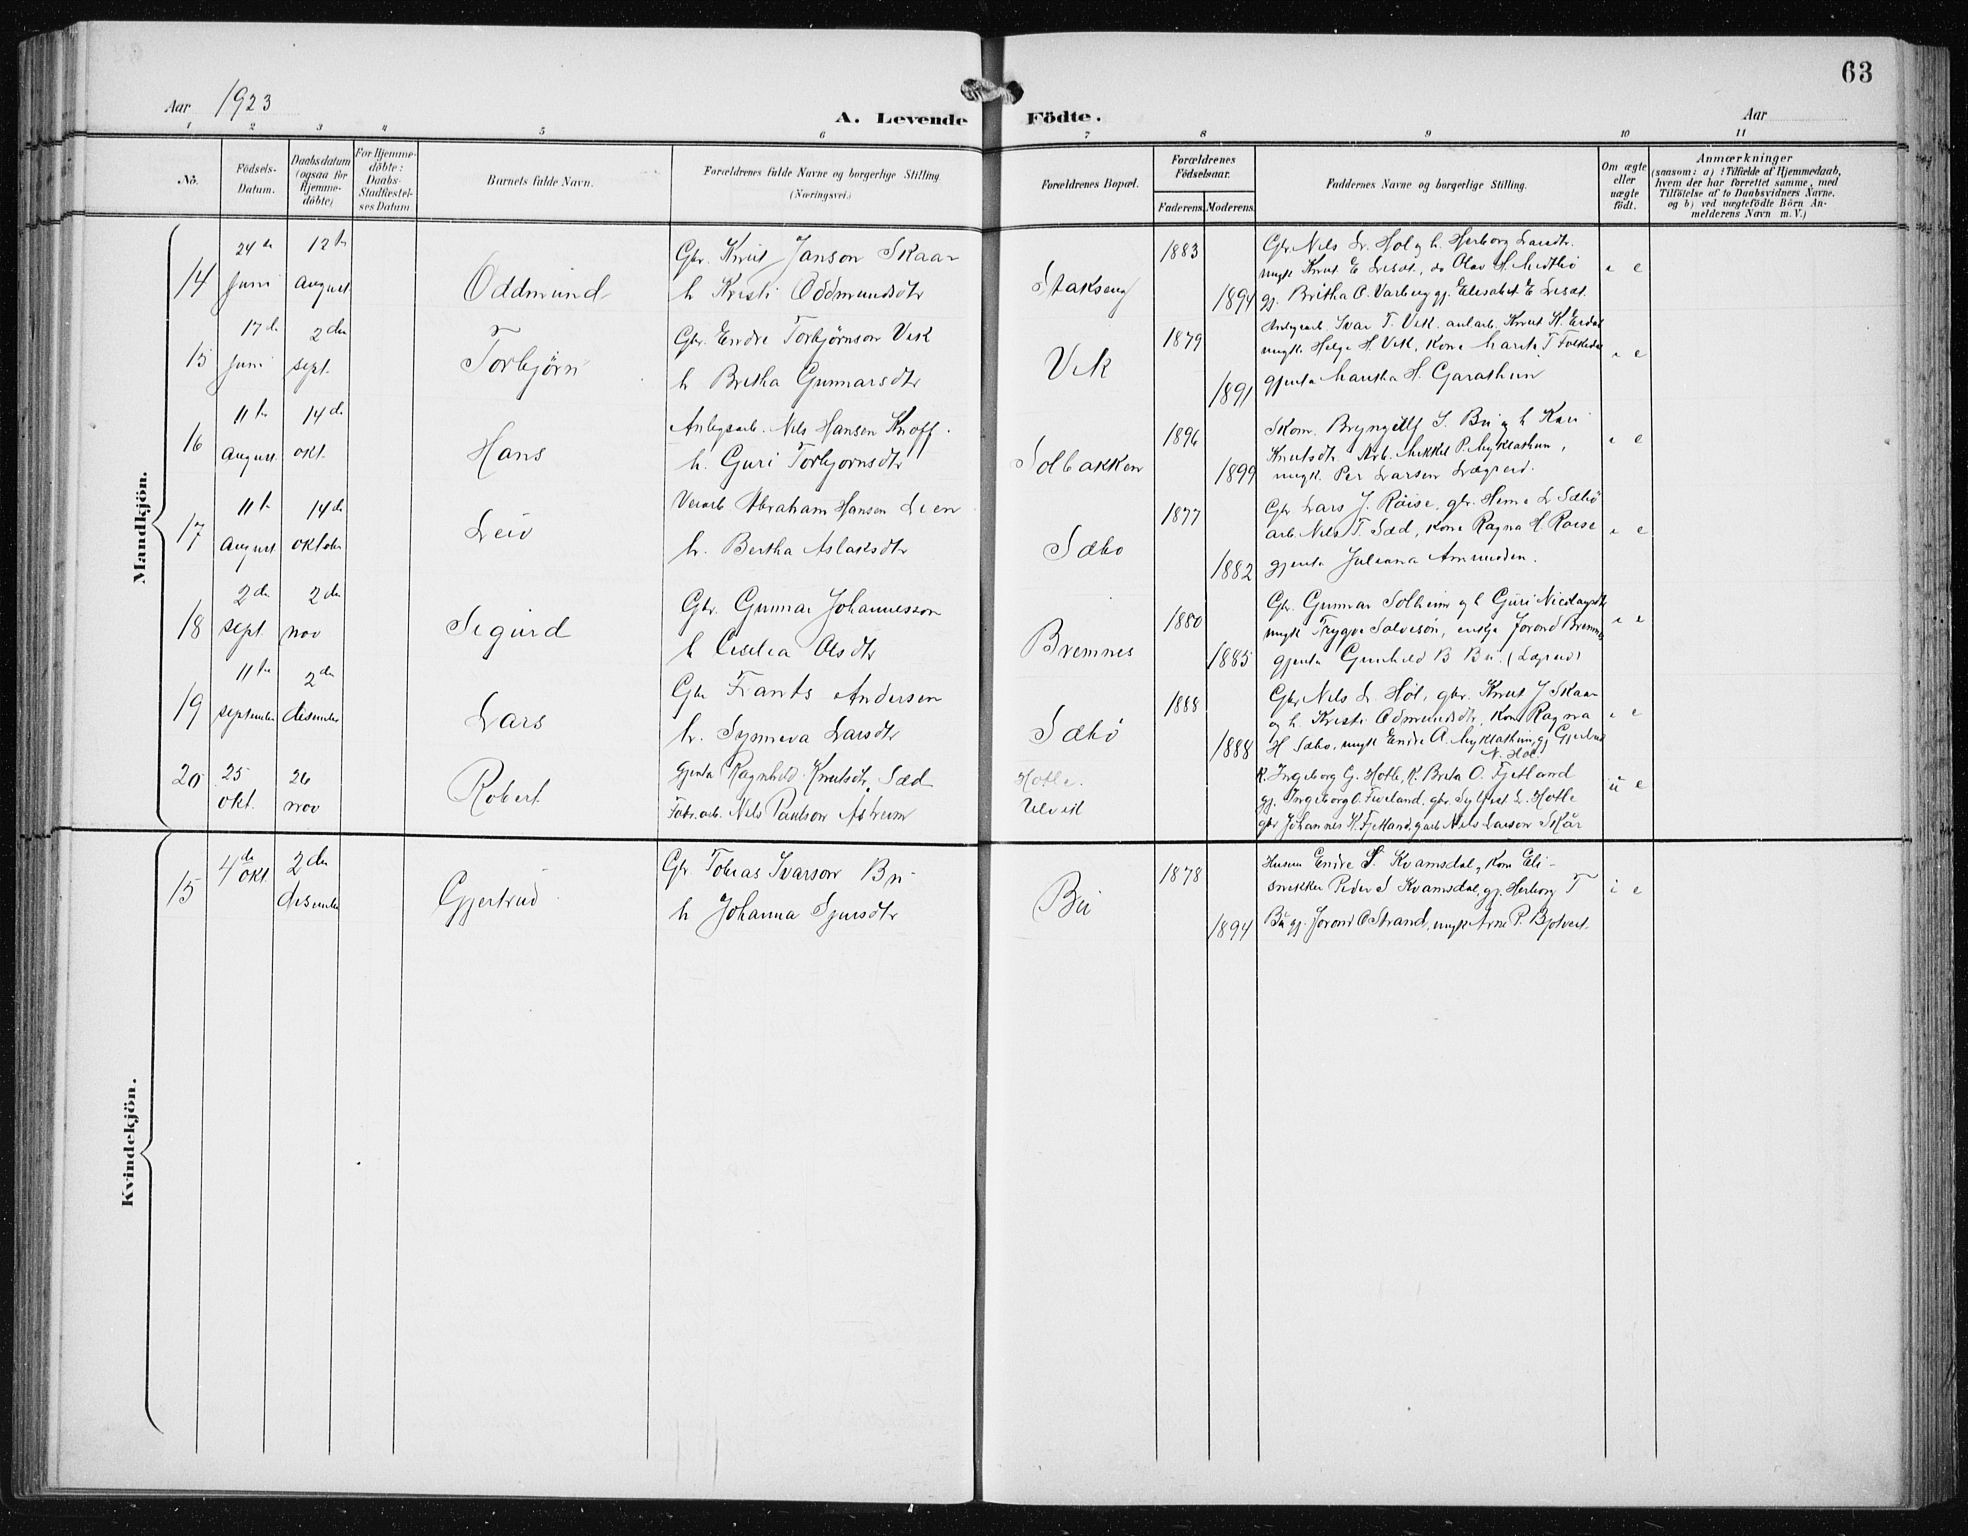 63
Aar 1923
A. Levende Födte.
Aar
1 2 3 4 5 6 7 8 9 10 11
No.
Födsels-Datum.
Daabsdatum (ogsaa for Hjemme-döbte)
For Hjemme-döbte: Daabs-Stadfæstel-ses Datum.
Barnets fulde Navn.
Forældrenes fulde Navne og borgerlige Stilling (Næringsvei.)
Forældrenes Bopæl.
Forældrenes Födselsaar.
Faderens. Moderens.
Faddernes Navne og borgerlige Stilling.
Om ægte eller uægte födt.
Anmærkninger
(saasom: a) i Tilfælde af Hjemmedaab,
hvem der har forrettet samme, med
Tilföielse af to Daabsvidners Navne.
og b) ved uægtefödte Börn An-
melderens Navn m. V.)
Mandkjön.
14
24de Juni
12te August
Oddmund
Gbr. Knut Janson Skaar
h. Kristi Oddmundsdtr
Stakseng
1883
1894
Gbr. Nils L. Hol og h. Herborg Larsdtr.
ungk Knut E. Lisæt, do Olav H. Midtbø
gj. Britha O. Varberg gj. Elisabet E. Lisæt.
" e
15
17de Juni
2den sept.
Torbjörn
Gbr. Endre Torbjørnson Vik
h Britha Gunnarsdtr
Vik
1879
1891
Ivar T. Vik. anl.arb. Knut H. Eidal
ungk. Helge H. Vik, kone Marita T Folkedal
gjenta Maritha H. Garathun
" e
16
11te August
14de okt.
Hans
Anlegsarb. Nils Hansen Knoff.
h. Guri Torbjørnsdtr
Solbakken
1896
1899
Skom. Bryngjulf S. Bu og h Kari
Knutsdtr. Arb. Mikkel P. Myklathun,
ungk. Per Larsen Lægreid.
" e
17
11te August
14de oktober
Leiv
Verarb Abraham Hansen Lien
h. Bertha Aslaksdtr
Sæbo
1877
1882
Gbr Lars J. Röise, gbr. Heine L Sæbö
arb. Nils T. Sæd, kone Ragna H. Røise
gjenta Julianna Amundsen.
" e
18
2den sept
2den nov
Sigurd
Gbr. Gunnar Johannesson
h Cesilia Olsdtr
Bremnes
1880
1885
Gbr. Gunnar Solheim og h Guri Nicolaysdtr
ungk Trygve Salvesön, enkje Jorond Bremnes
gjenta Gunhild B Bu. (Lægreid)
" e
19
11te september
2den desember
Lars
Gbr Frants Andersen
h. Synneva Larsdtr
Sæbö
1888
1888
Gbr Nils L. Höl, gbr. Knut J Skaar
og h. Kristi Odmundsdtr, kone Ragna
H Sæbo, ungk Endre A. Myklathun, gj Gjertrud
N. Höl.
" e
20
25 okt.
26 nov
Robert
Gjenta Ragnhild Knutsdtr. Sæd
Fabr.arb. Nils Paulson Astrum
Hotle.
Ulvik
k. Ingeborg G. Hotle, k. Brita O. Fjetland
gj. Ingeborg O. Fiveland, gbr. Sylfest L. Hotle
gbr Johannes K. Fjetland, g.arb Nils Larson Skår
u e
Kvindekjön.
15
4de okt.
2den desember
Gjertrud
Gbr Tobias Ivarson Bu
h Johanna Sjursdtr
Bu
1878
1894
Husm Endre S. Kvamsdal, kone Eli-
snikker Peder S Kvamsdal, gj. Herborg T
Bu gj. Jorond O Strand, ungk Arne P. Bjotveit.
i e